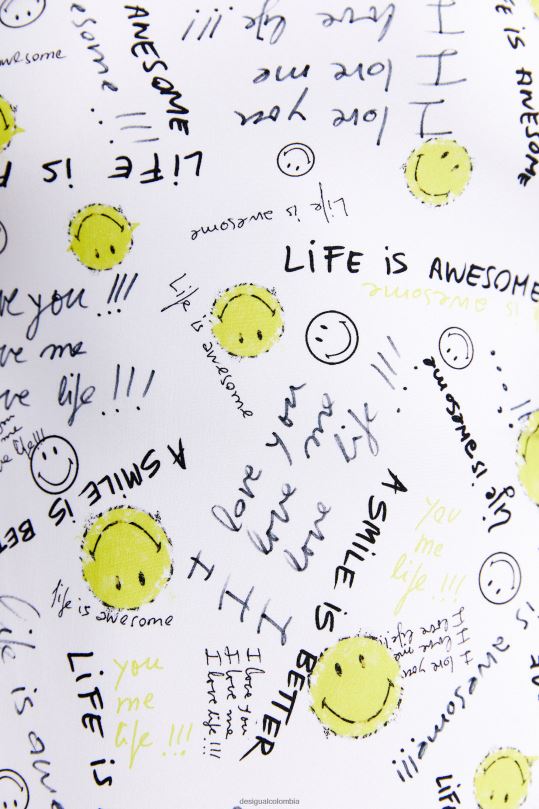 I love life !!!
I love me
I love you
ANESOME
esome !!!
LiFE is
E iS ANESOME
Life is awesome
LiFE iS AWESOME
is awesome
ve you !!!
ve me
ve life !!!
Life is awesome
I love you !!!
I love me
I love life
life is awesome
A SMiLE iS BET
A SMiLE iS BETTER
you
me
life !!!
life is awesome
I love you
I love me
I love life!!!
is awesome!!!
life is awe
LiFE iS
you
me
life !!!
I love you
I love me
I love life !!!
LiFE
desigualcolombia